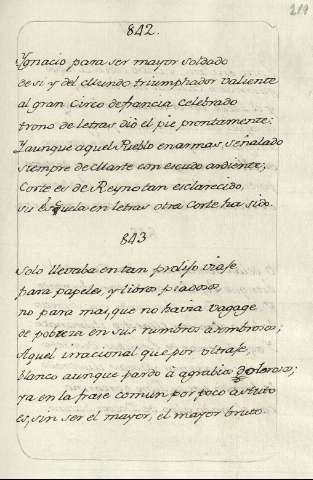 219
842.
Ygnacio para ser mayor soldado
de si y del Mundo triumphador valiente
al gran Circo de francia celebrado
trono de letras diò el pie prontamente;
Y aunque aquel Pueblo en armas señalado
siempre de Marte con escudo ardiente;
Corte es de Reyno tan esclarecido,
su Esquela en letras otra Corte ha sido.
843
Solo llevaba en tan prolijo viaje
para papeles, y libros piadosos,
no para mas, que no havia vagage
de pobreza en sus rumbos asombrosos;
Aquel irracional que por ultraje,
blanco aunque pardo à agrabios dolorosos;
ya en la frase comun por poco astuto
es, sin ser el mayor, el mayor bruto.